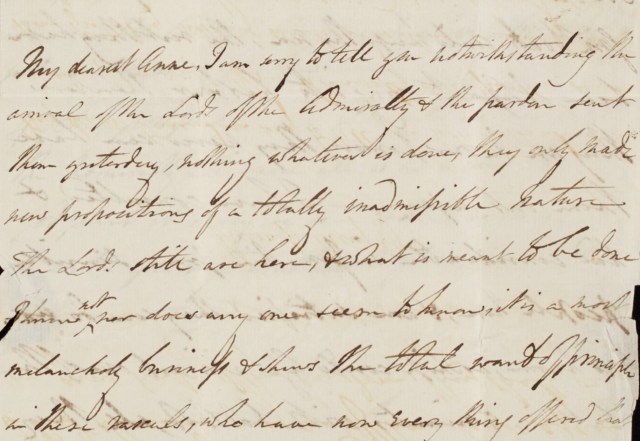 My dearest Anne, I am sorry to tell you notwithstanding the
arrival of the Lords of the Admiralty & the pardon sent
them yesterday, nothing whatever is done, they only made
new propositions of a totally inadmissible nature
The Lords still are here, & what is meant to be done
I know not, nor does any one seem to know it is a most
melancholy business & shews the total want of principle
in these rascals, who have now every thing offered that